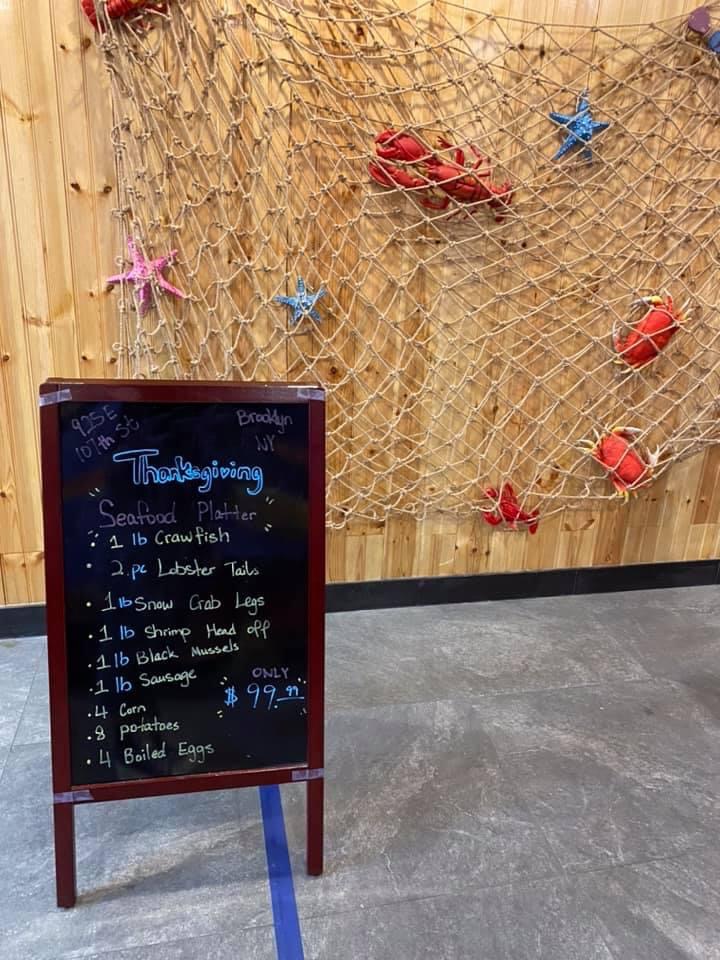 925 E
107th St
Brooklyn
NY
Thanksgiving
Seafood Platter
• 1 lb Crawfish
• 2.pc Lobster Tails
• 1 lb Snow Crab Legs
• 1 lb Shrimp Head off
• 1 lb Black Mussels
• 1 lb Sausage
ONLY
$ 99.99
• 4 Corn
• 8 potatoes
• 4 Boiled Eggs